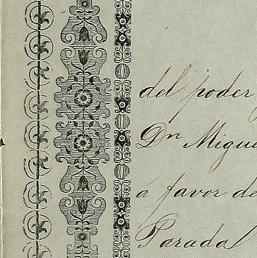 del poder
Dn Migue
a favor de
Parada